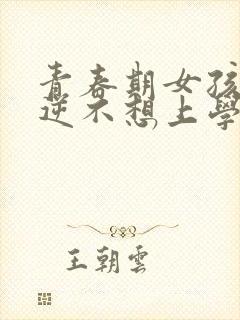 青春期女孩
逆不想上學
王朝雲